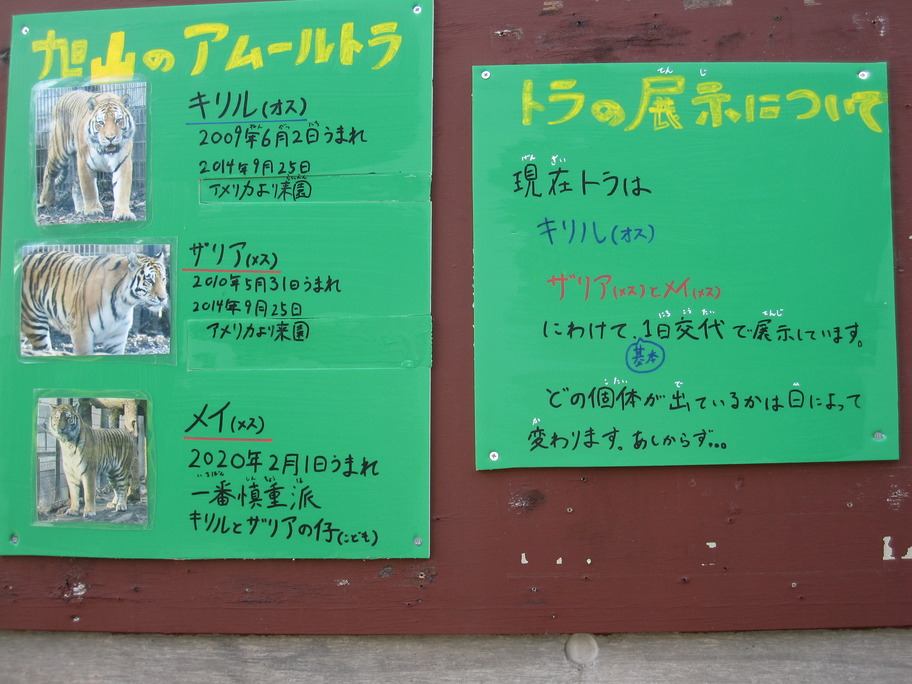 旭山のアムールトラ
キリル(オス)
2009年6月2日うまれ
2014年9月25日
アメリカより来園
ザリア(メス)
2010年5月31日うまれ
2014年9月25日
アメリカより来園
メイ(メス)
2020年2月1日うまれ
一番慎重派
キリルとザリアの仔(こども)
トラの展示について
現在トラは
キリル(オス)
ザリア(メス)とメイ(メス)
にわけて、1日交代で展示しています。
基本
どの個体が出ているかは日によって
変わります。あしからず...